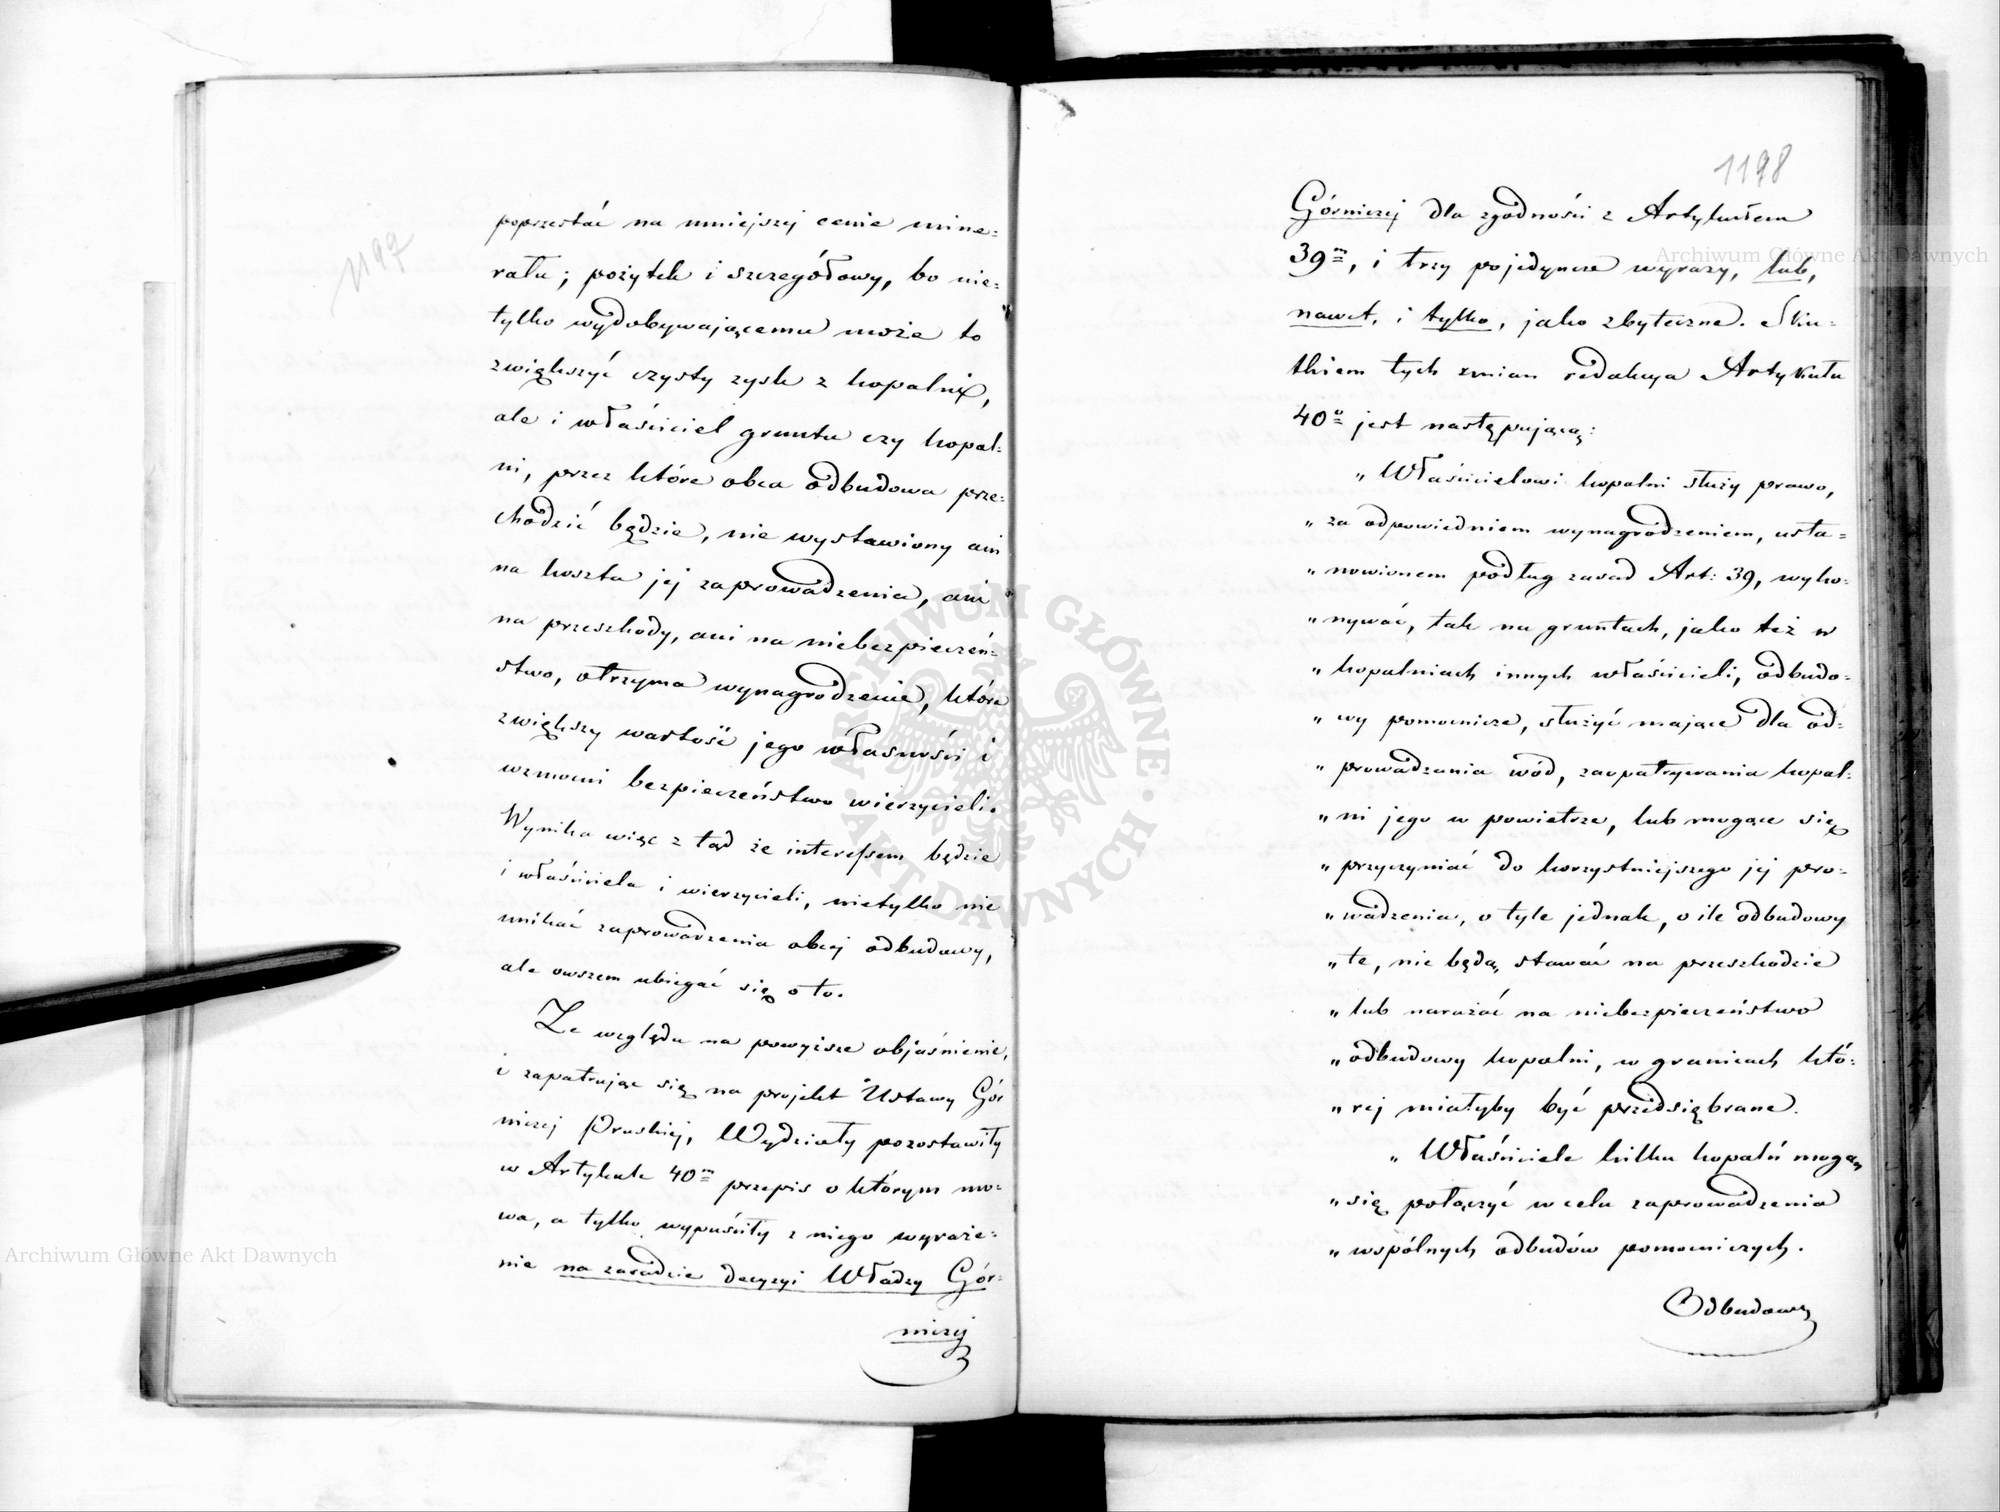 1197
poprzestać na mniejszej cenie mine=
rału; pożytek i szczegółowy, bo nie=
tylko wydobywającemu może to
zwiększyć czysty zysk z kopalni,
ale i właściciel gruntu czy kopal=
ni, przez które obca odbudowa prze=
chodzić będzie, nie wystawiony ani
na koszta jej zaprowadzenia, ani
na przeszkody, ani na niebezpieczeń=
stwo, otrzyma wynagrodzenie, które
zwiększy wartość jego własności i
wzmocni bezpieczeństwo wierzycieli.
Wynika więc z tąd że interessem będzie
i właściciela i wierzycieli, nietylko nie
unikać zaprowadzenia obcej odbudowy,
ale owszem ubiegać się o to.
Ze względu na powyższe objaśnienie,
i zapatrując się na projekt Ustawy Gór
niczej Pruskiej, Wydziały pozostawiły
w Artykule 40m przepis o którym mo=
wa, a tylko wypuściły z niego wyraże=
nie na zasadzie decyzyi Władzy Gór=
niczej
1198
Górniczej dla zgodności z Artykułem
39m, i trzy pojedyncze wyrazy, lub,
nawet, i tylko, jako zbyteczne. Sku=
tkiem tych zmian redakcya Artykułu
40o jest następująca:
„ Właścicielowi kopalni służy prawo,
„ za odpowiedniem wynagrodzeniem, usta=
„ nowionem podług zasad Art: 39, wyko=
„ nywać, tak na gruntach, jako też w
„ kopalniach innych właścicieli, odbudo=
„ wy pomocnicze, służyć mające dla od=
„ prowadzania wód, zaopatrywania kopal=
„ ni jego w powietrze, lub mogące się
„ przyczyniać do korzystniejszego jej pro=
„ wadzenia, o tyle jednak, o ile odbudowy
„ te, nie będą stawać na przeszkodzie
„ lub narażać na niebezpieczeństwo
„ odbudowy kopalni, w granicach któ=
„ rej miałyby być przedsiębrane.
„ Właściciele kilku kopalń mogą
„ się połączyć w celu zaprowadzenia
„ wspólnych odbudów pomocniczych.
Odbudowy
Archiwum Główne Akt Dawnych
Archiwum Główne Akt Dawnych
ARCHIWUM GŁÓWNE · AKT DAWNYCH ·